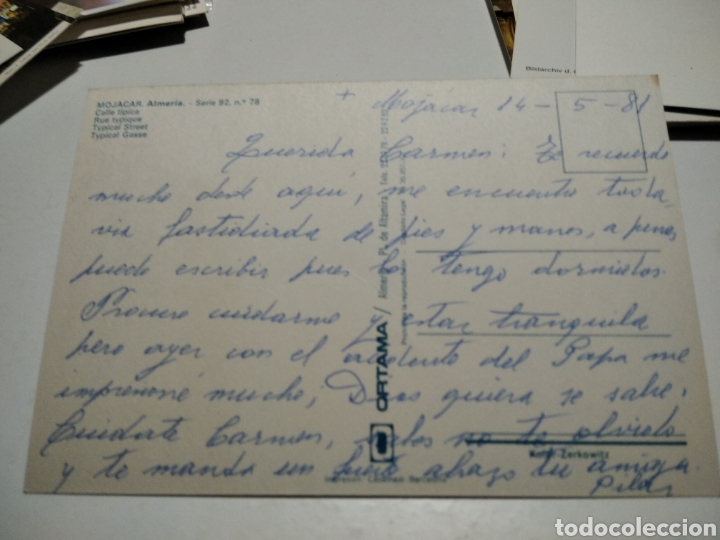 MOJACAR. Almería. - Serie 92, n.° 78
Calle típica
Rue typique
Typical Street
Typical Gasse
Bildarchiv d.
+ Mojacar 14-5-81
Querida Carmen: Te recuerdo
mucho desde aquí, me encuentro toda
via fastidiada de pies y manos, a penas
puedo escribir pues los tengo dormidos.
Procuro cuidarme y estar tranquila
pero ayer con el accidente del Papa me
impresione mucho, Dios quiera se salve.
Cuidate Carmen, sabes no te olvido
y te manda un fuerte abrazo tu amiga
Pilar
ORTAMA / Almería Pl. de Altamira
Kolor-Zerkowitz
todocoleccion
todocoleccion.net